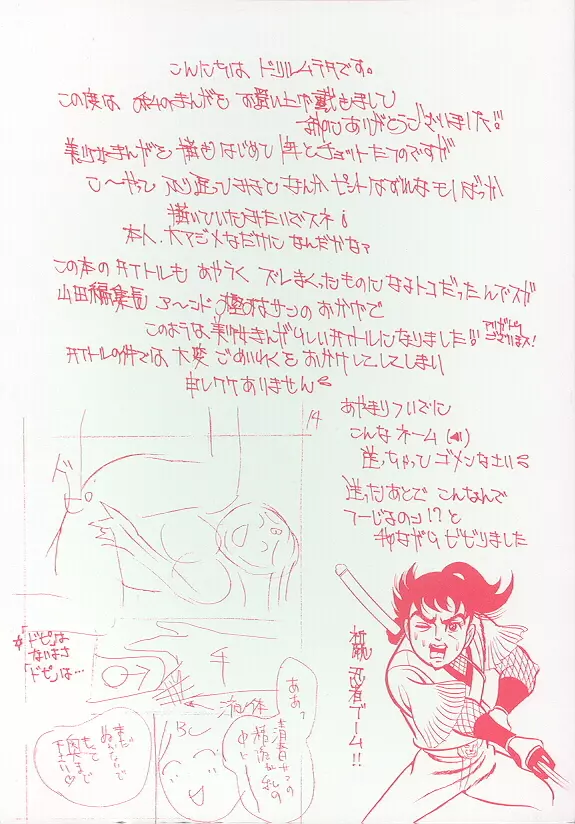 こんにちは ドリルムラタです。
この度は 私のまんがを お買い上げ戴きまして
ありがとうございました!!
美少女まんがを 描きはじめて 年とチョットたつのですが
こ〜やって ふり返ってみると なんか ピントはずれなモノばっか
描いていたみたいですネ
本人、大マジメなだけに なんだかな?
この本の タイトルも あやうく ズレまくったものになるトコだったんでスが
山田編集長 ア〜ンド サンのおかげで
このような 美少女まんがらしい タイトルになりました!!
アリガトウ
ございまス!
タイトルの件では 大変 ごめいわくを おかけしてしまい
申しワケありません
14
あやまりついでに
こんなネーム
送っちゃって ゴメンなさい
送ったあとで こんなんで
つーじるのか!?と
我ながら ビビりました
ド
☆「ドピ」は
ないまさ
「ドピ」は…
液体
チ
ああっ
BC
まだ
ぬかないで
もっと
奥まで
下さい♡
忍者ゲーム!!